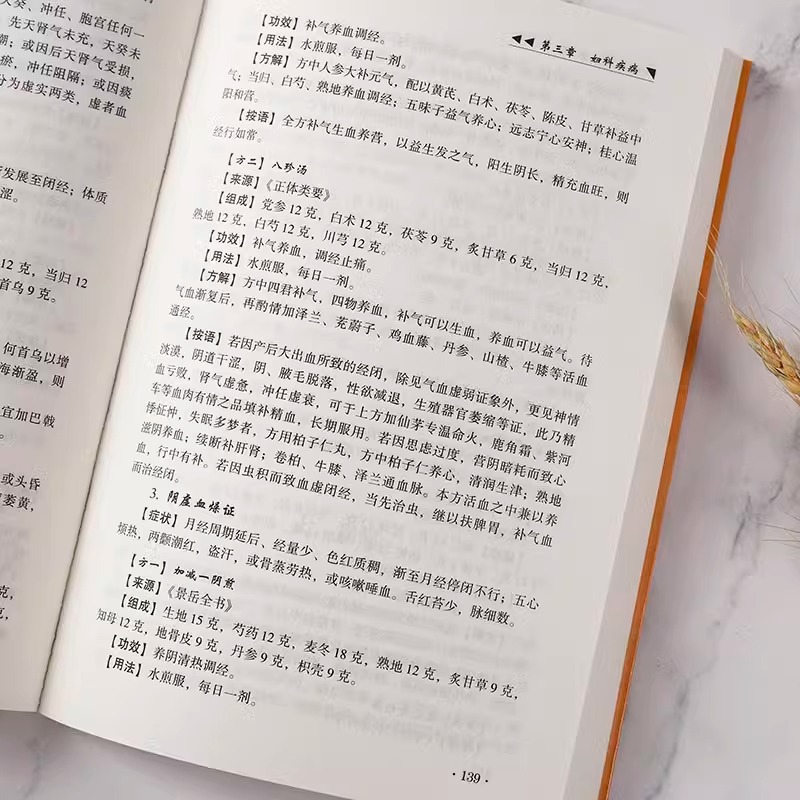 癸、冲任、胞宫任何一
先天肾气未充，天癸未
潮；或因后天肾气受损，
瘀，冲任阻隔；或因痰
分为虚实两类，虚者血
发展至闭经；体质
涩。
12 克，当归 12
首乌 9 克。
何首乌以增
海渐盈，则
宜加巴戟
或头昏
萎黄，
第三章 妇科疾病
【功效】补气养血调经。
【用法】水煎服，每日一剂。
【方解】方中人参大补元气，配以黄芪、白术、茯苓、陈皮、甘草补益中
气；当归、白芍、熟地养血调经；五味子益气养心；远志宁心安神；桂心温
阳和营。
【按语】全方补气生血养营，以益生发之气，阳生阴长，精充血旺，则
经行如常。
【方二】八珍汤
【来源】《正体类要》
【组成】党参 12 克，白术 12 克，茯苓 9 克，炙甘草 6 克，当归 12 克，
熟地 12 克，白芍 12 克，川芎 12 克。
【功效】补气养血，调经止痛。
【用法】水煎服，每日一剂。
【方解】方中四君补气，四物养血，补气可以生血，养血可以益气。待
气血渐复后，再酌情加泽兰、茺蔚子、鸡血藤、丹参、山楂、牛膝等活血
通经。
【按语】若因产后大出血所致的经闭，除见气血虚弱证象外，更见神情
淡漠，阴道干涩，阴、腋毛脱落，性欲减退，生殖器官萎缩等证，此乃精
血亏败，肾气虚惫，冲任虚衰，可于上方加仙茅专温命火，鹿角霜、紫河
车等血肉有情之品填补精血，长期服用。若因思虑过度，营阴暗耗而致心
悸怔忡，失眠多梦者，方用柏子仁丸，方中柏子仁养心，清润生津；熟地
滋阴养血；续断补肝肾；卷柏、牛膝、泽兰通血脉。本方活血之中兼以养
血，行中有补。若因虫积而致血虚闭经，当先治虫，继以扶脾胃，补气血
而治经闭。
3. 阴虚血燥证
【症状】月经周期延后、经量少、色红质稠，渐至月经停闭不行；五心
烦热，两颧潮红，盗汗，或骨蒸劳热，或咳嗽唾血。舌红苔少，脉细数。
【方一】加减一阴煎
【来源】《景岳全书》
【组成】生地 15 克，芍药 12 克，麦冬 18 克，熟地 12 克，炙甘草 9 克，
知母 12 克，地骨皮 9 克，丹参 9 克，枳壳 9 克。
【功效】养阴清热调经。
【用法】水煎服，每日一剂。
·139·